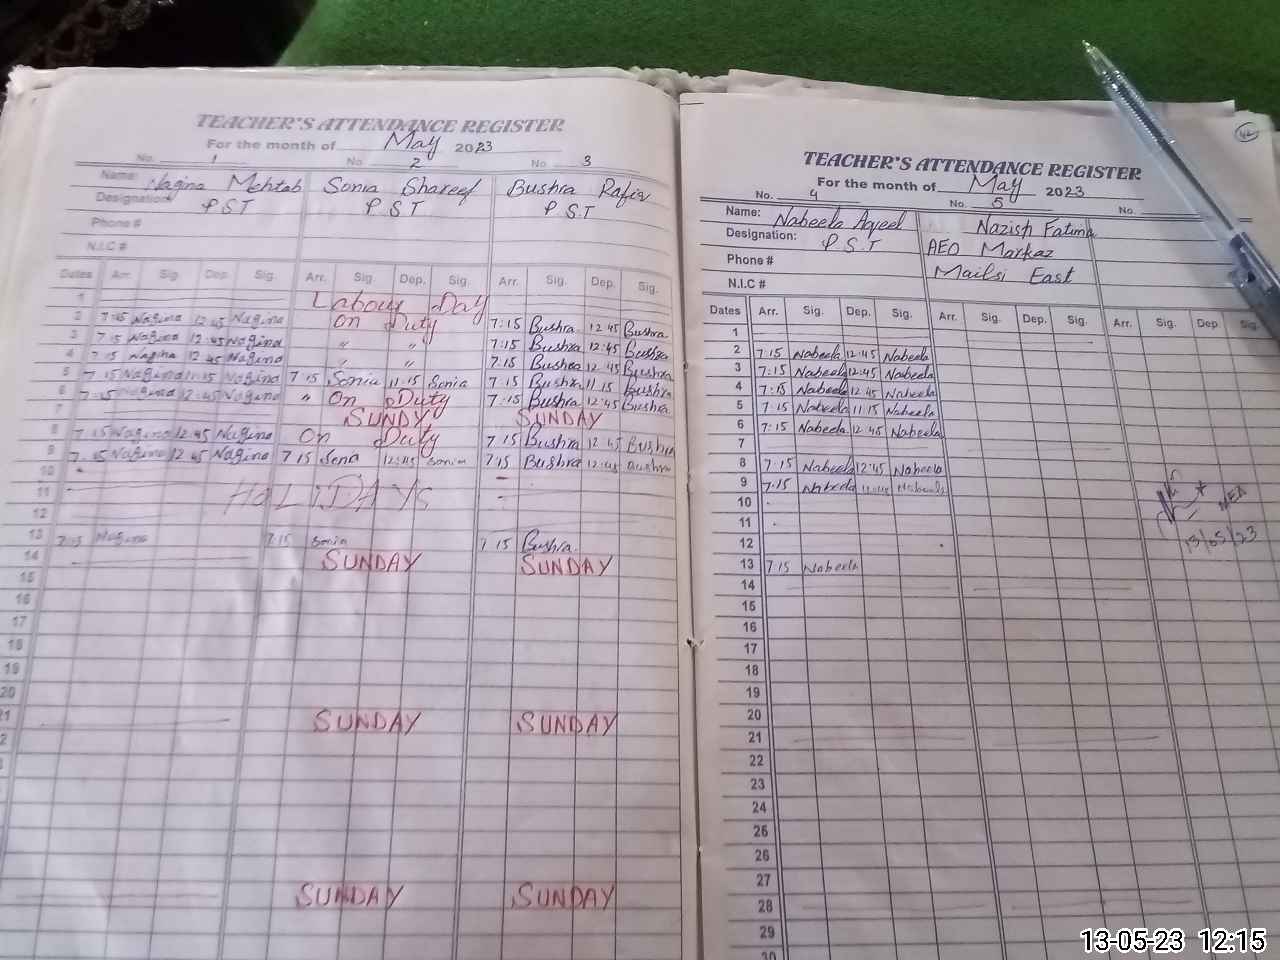 TEACHER'S ATTENDANCE REGISTER
For the month of May 2023
No. 1 No. 2 No. 3
Name: Nagina Mehtab Sonia Shareef Bushra Rafiq
Designation: P.S.T P.S.T P.S.T
Phone #
N.I.C #
Dates Arr. Sig. Dep. Sig. Arr. Sig. Dep. Sig. Arr. Sig. Dep. Sig.
1 Labour Day
2 7:15 Nagina 12:45 Nagina On Duty 7:15 Bushra 12:45 Bushra
3 7:15 Nagina 12:45 Nagina " " 7:15 Bushra 12:45 Bushra
4 7:15 Nagina 12:45 Nagina " " 7:15 Bushra 12:45 Bushra
5 7:15 Nagina 11:15 Nagina 7:15 Sonia 11:15 Sonia 7:15 Bushra 11:15 Bushra
6 7:15 Nagina 12:45 Nagina " On Duty 7:15 Bushra 12:45 Bushra
7 SUNDY SUNDAY
8 7:15 Nagina 12:45 Nagina On Duty 7:15 Bushra 12:45 Bushra
9 7:15 Nagina 12:45 Nagina 7:15 Sonia 12:45 Sonia 7:15 Bushra 12:45 Bushra
10
11 HOLIDAYS
12
13 7:15 Nagina 7:15 Sonia 7:15 Bushra
14 SUNDAY SUNDAY
15
16
17
18
19
20
21 SUNDAY SUNDAY
2
SUNDAY SUNDAY
TEACHER'S ATTENDANCE REGISTER
42
For the month of May 2023
No. 4 No. 5 No.
Name: Nabeela Aqeel Nazish Fatima
Designation: P.S.T AEO Markaz
Phone # Mailsi East
N.I.C #
Dates Arr. Sig. Dep. Sig. Arr. Sig. Dep. Sig. Arr. Sig. Dep. Sig.
1
2 7:15 Nabeela 12:45 Nabeela
3 7:15 Nabeela 12:45 Nabeela
4 7:15 Nabeela 12:45 Nabeela
5 7:15 Nabeela 11:15 Nabeela
6 7:15 Nabeela 12:45 Nabeela
7
8 7:15 Nabeela 12:45 Nabeela
9 7:15 Nabeela 12:45 Nabeela
10 MEA
11
12 13/05/23
13 7:15 Nabeela
14
15
16
17
18
19
20
21
22
23
24
26
26
27
28
29
30
13-05-23 12:15